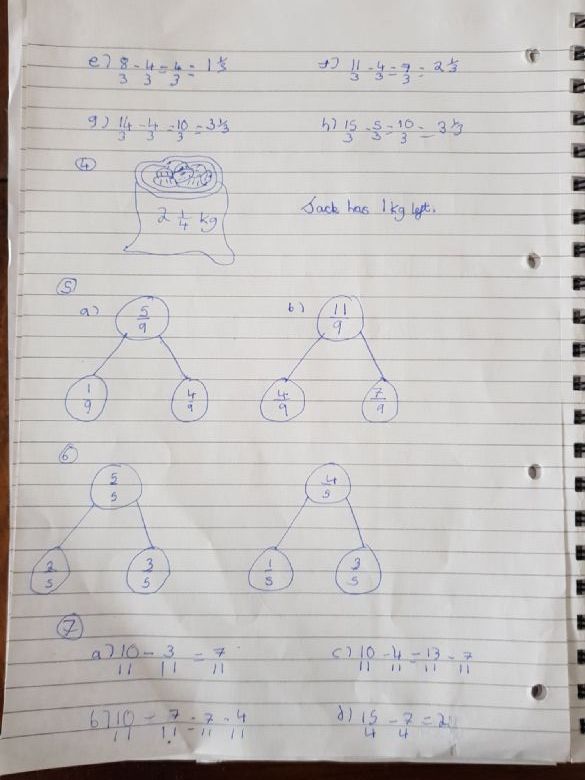 e) 8/3 - 4/3 = 4/3 = 1 1/3
f) 11/3 - 4/3 = 7/3 = 2 1/3
g) 14/3 - 4/3 = 10/3 = 3 1/3
h) 15/3 - 5/3 = 10/3 = 3 1/3
4
2 1/4 kg
Jack has 1kg left.
5
a) 5/9
1/9 4/9
b) 11/9
4/9 7/9
6
5/5
2/5 3/5
4/5
1/5 3/5
7
a) 10/11 - 3/11 = 7/11
c) 10/11 - 4/11 = 13/11 - 7/11
b) 10/11 - 7/11 = 7/11 - 4/11
d) 15/4 - 7/4 = 2